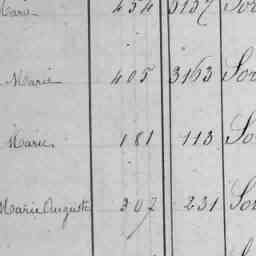 Marie 454 3157 Sor
Marie 405 3163 Sor
Marie 181 113 So
Marie Auguste 307 231 Sor